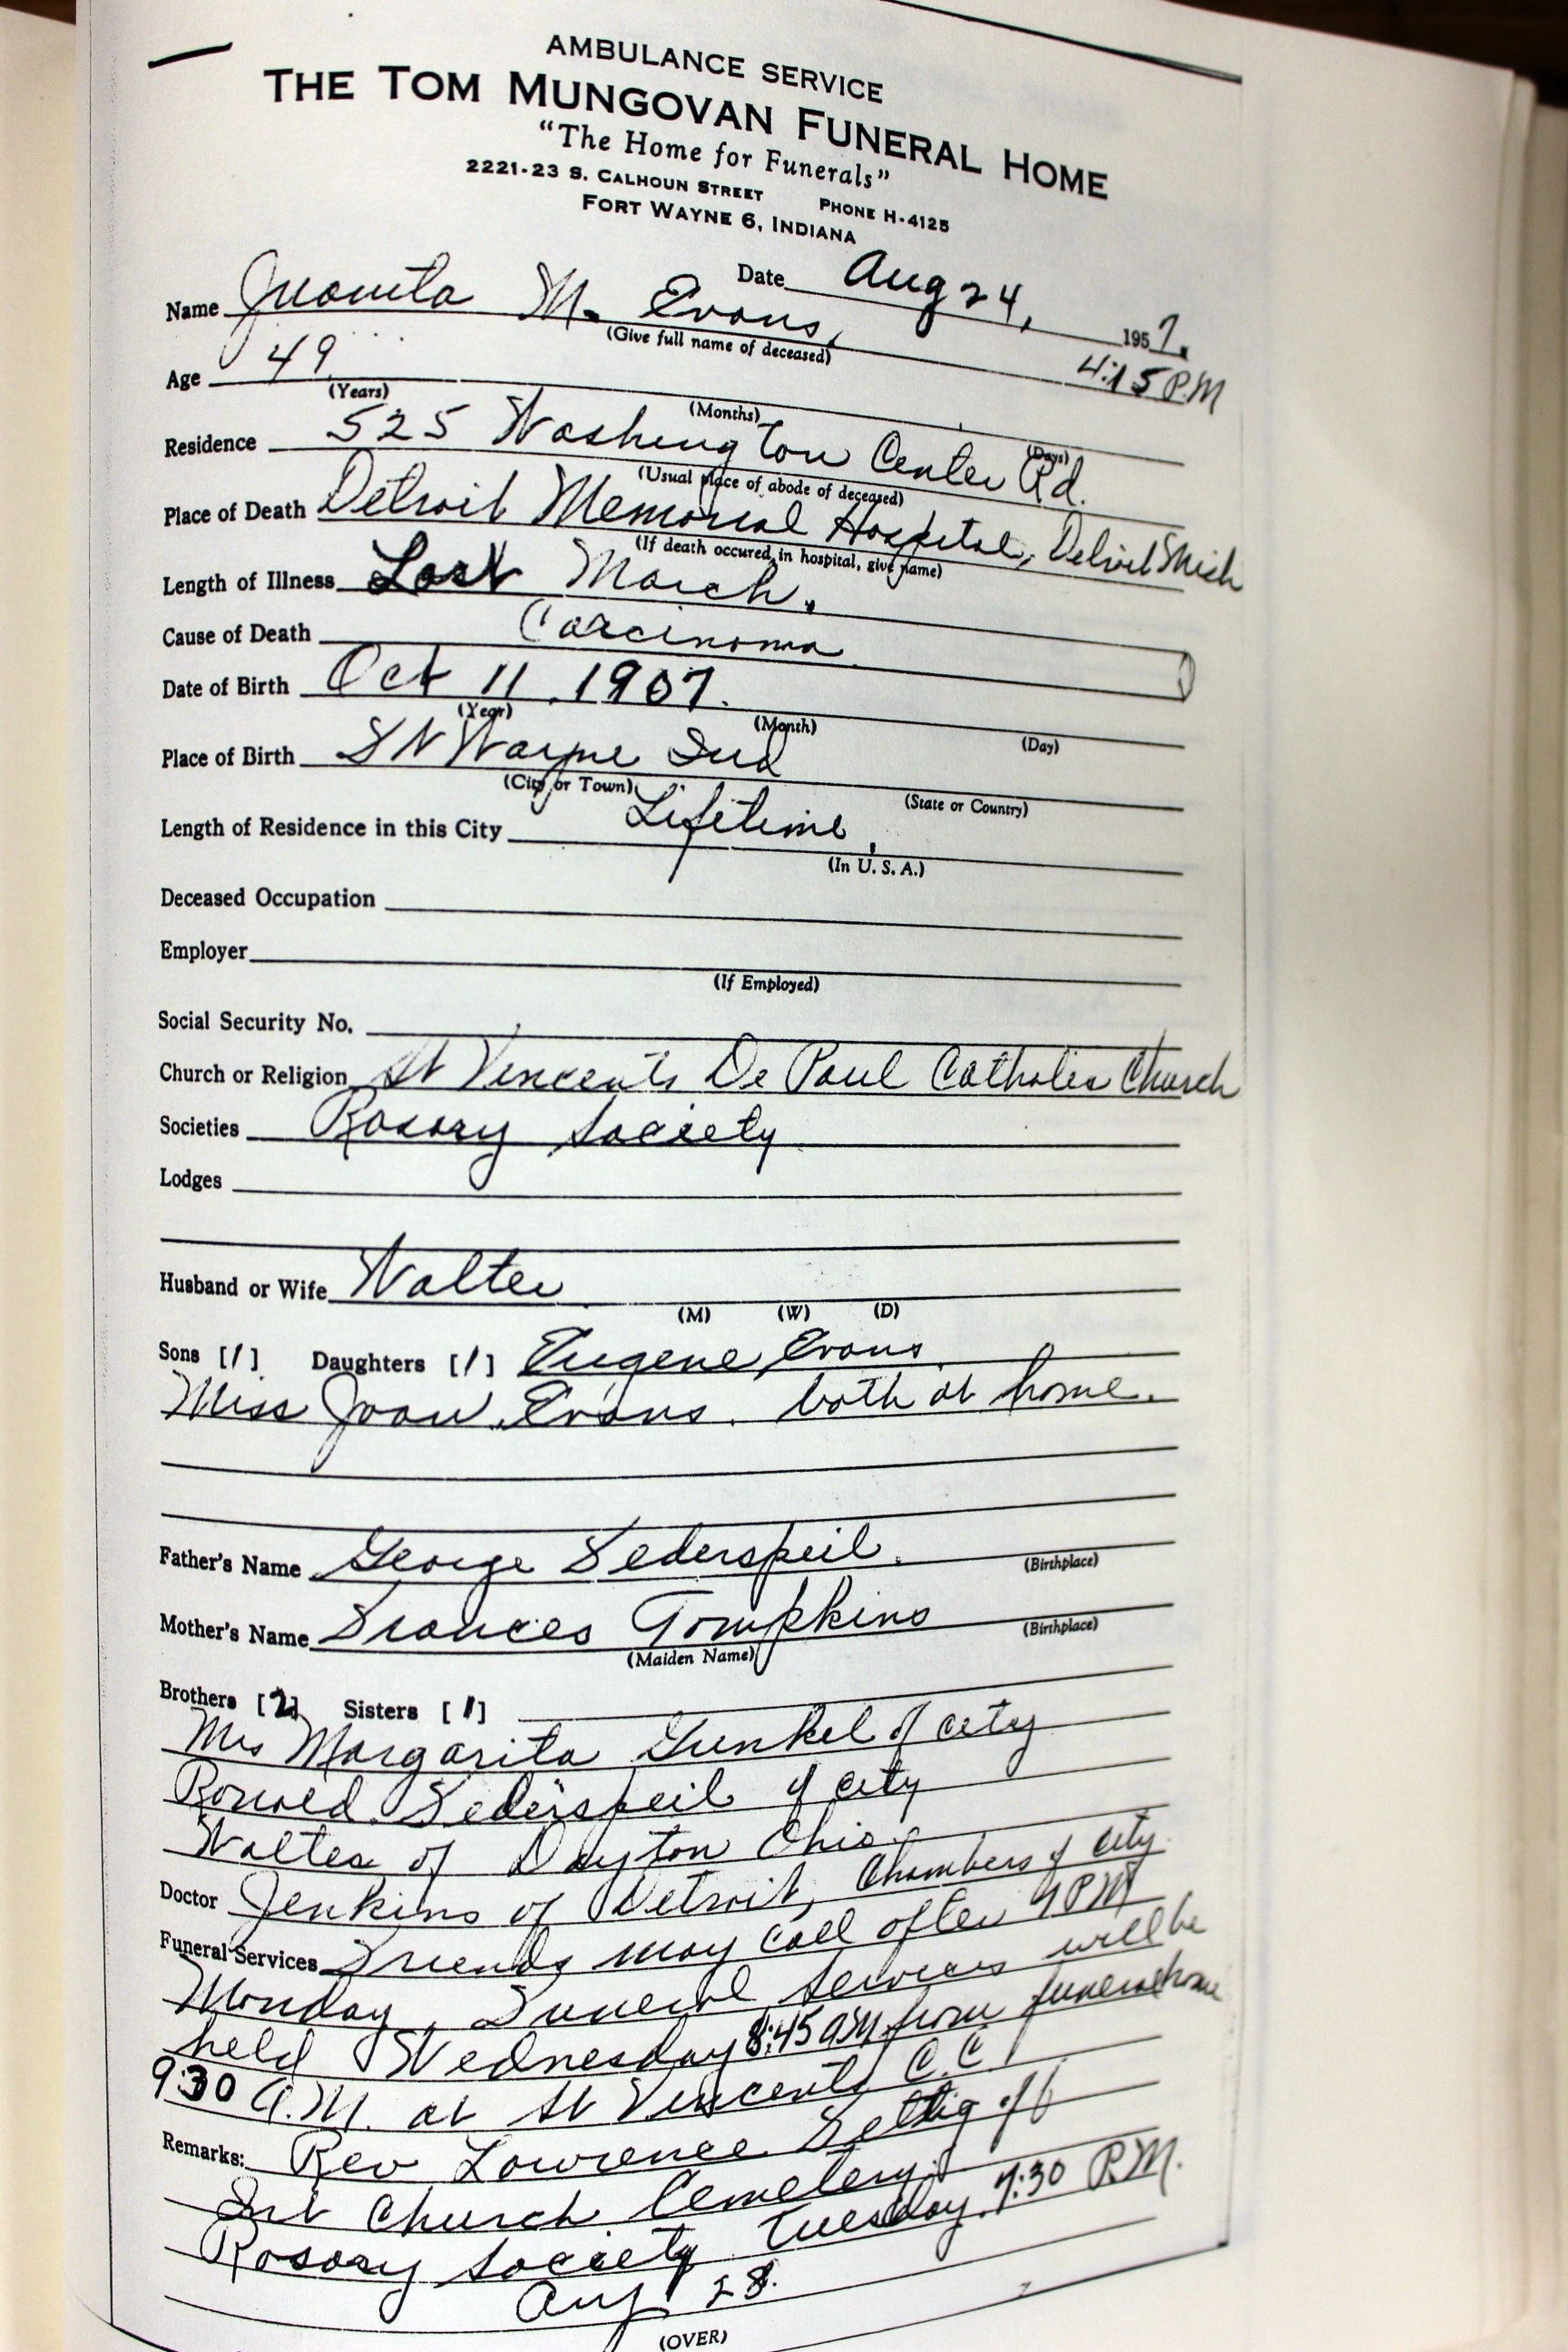 AMBULANCE SERVICE
THE TOM MUNGOVAN FUNERAL HOME
"The Home for Funerals"
2221-23 S. CALHOUN STREET PHONE H-4125
FORT WAYNE 6, INDIANA
Date Aug 24, 1957.
Name Juanita M. Evans,
(Give full name of deceased)
4:15 P.M
Age 49
(Years) (Months) (Days)
Residence 525 Washington Center Rd.
(Usual place of abode of deceased)
Place of Death Detroit Memorial Hospital, Detroit Mich
(If death occured in hospital, give name)
Length of Illness Last March.
Cause of Death Carcinoma
Date of Birth Oct 11, 1907.
(Year) (Month) (Day)
Place of Birth Ft Wayne Ind
(City or Town) (State or Country)
Length of Residence in this City Lifetime
(In U. S. A.)
Deceased Occupation
Employer
(If Employed)
Social Security No.
Church or Religion St Vincents De Paul Catholic Church
Societies Rosary Society
Lodges
Husband or Wife Walter
(M) (W) (D)
Sons [1] Daughters [1] Eugene Evans
Miss Joan Evans. both at home.
Father's Name George Federspeil.
(Birthplace)
Mother's Name Frances Tompkins
(Maiden Name) (Birthplace)
Brothers [2] Sisters [1]
Mrs Margarita Gunkel of city
Ronald Federspeil of city
Walter of Dayton Ohio.
Doctor Jenkins of Detroit, Chambers of city
Funeral Services Friends may call after 7 PM
Monday. Funeral services will be
held Wednesday 8:45 AM from funeral home
9:30 A.M. at St Vincents C.C.
Remarks: Rev Lawrence Fettig off
Int Church Cemetery.
Rosary Society Tuesday 7:30 P.M.
Aug 28.
(OVER)